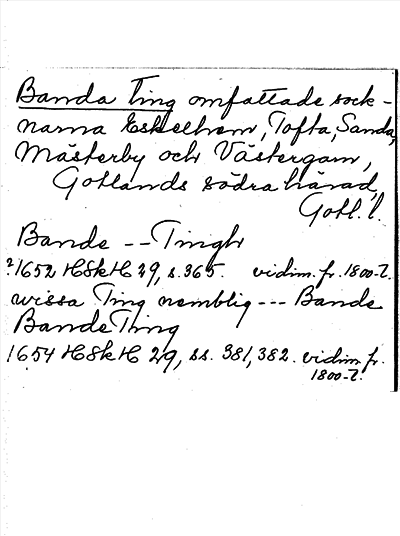 Banda Ting omfattade sock-
narna Eskelhem, Tofta, Sanda,
Mästerby och Västergarn,
Gotlands södra härad,
Gotl. l.
Bande -- Tingh
? 1652 HSkH 29, s. 365. vidim. fr. 1800-t.
wissa Ting nemblig --- Bande
Bande Ting
1654 HSkH 29, ss. 381, 382. vidim. fr.
1800-t.